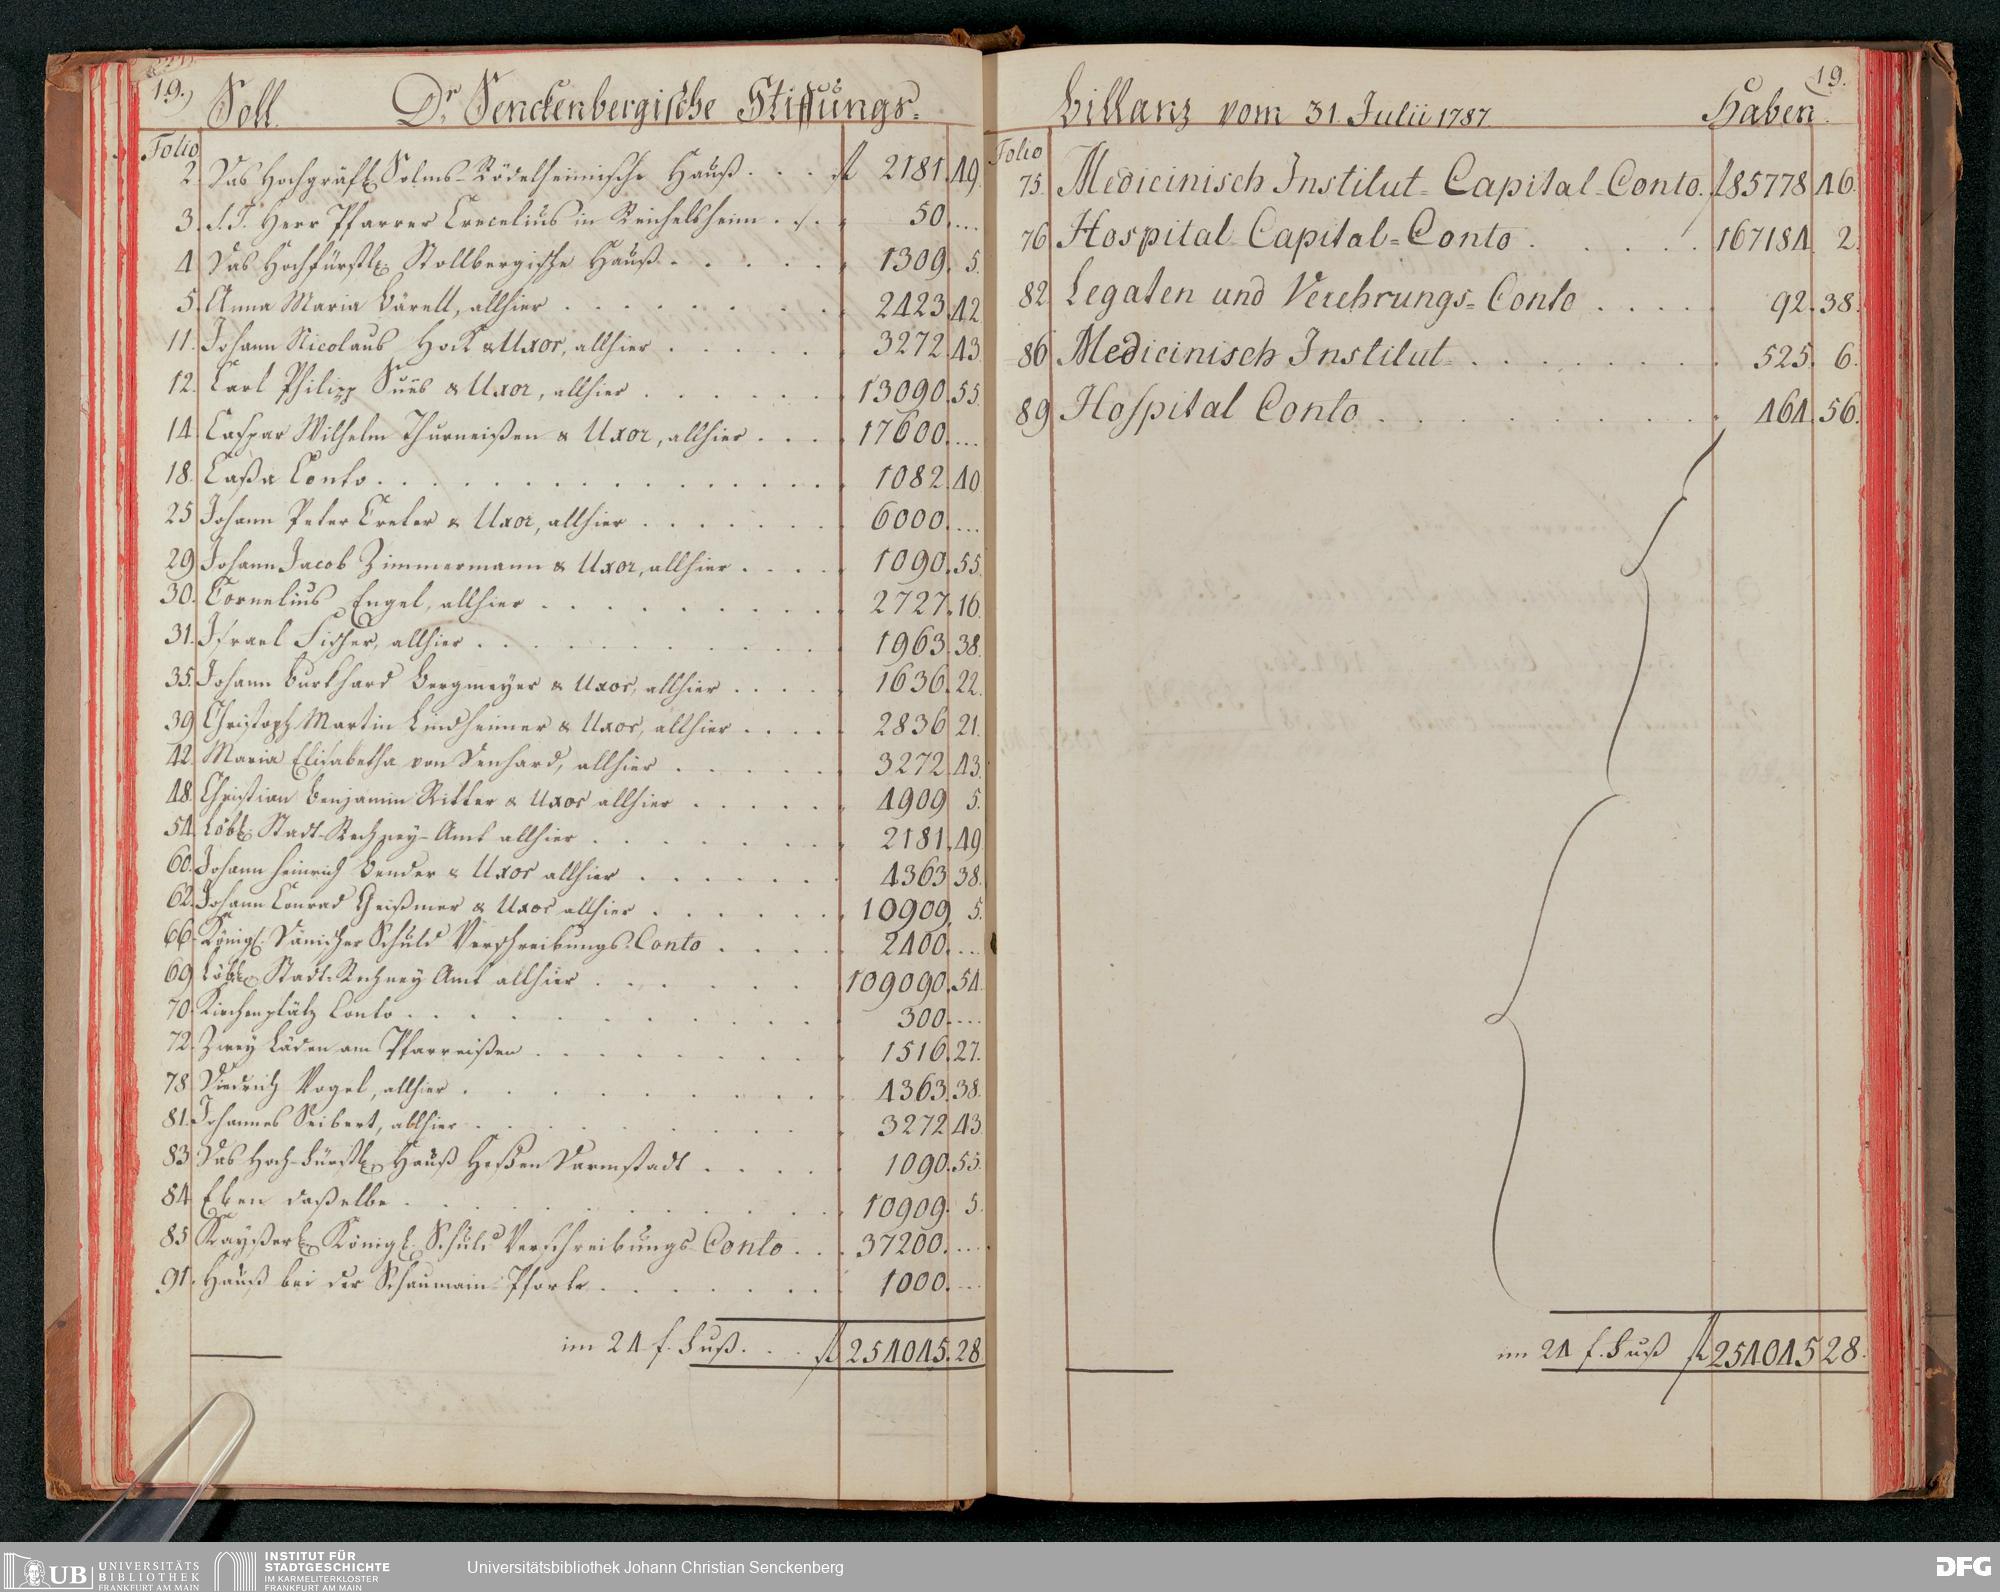 19.
Soll. Dr. Senckenbergische Stiftungs=
Folio
2. Das Hochgräfl. Solms-Rödelheimische Hauß . . . fl 2181. 49.
3. S.T. Herr Pfarrer Crecelius in Reichelsheim . . . 50. ...
4. Das Hochfürstl. Stollbergische Hauß . . . . . 1309. 5.
5. Anna Maria Bärell, allhier . . . . . . . 2423. 42.
11. Johann Nicolaus Hock & Uxor, allhier . . . . . 3272. 43.
12. Carl Philipp Sueß & Uxor, allhier . . . . . . 13090. 55.
14. Caspar Wilhelm Thurneißen & Uxor, allhier . . . . 17600. ...
18. Caßa Conto . . . . . . . . . . 1082. 40.
25. Johann Peter Creter & Uxor, allhier . . . . . . 6000. ...
29. Johann Jacob Zimmermann & Uxor, allhier . . . . 1090. 55.
30. Cornelius Engel, allhier . . . . . . . . 2727. 16.
31. Israel Fischer, allhier . . . . . . . . . 1963. 38.
35. Johann Burkhard Bergmeyer & Uxor, allhier . . . . 1636. 22.
39. Christoph Martin Lindheimer & Uxor, allhier . . . . 2836. 21.
42. Maria Elisabetha von Denhard, allhier . . . . . 3272. 43.
48. Christian Benjamin Ritter & Uxor allhier . . . . . 4909. 5.
54. Löbl. Stadt-Rechney-Amt allhier . . . . . . . 2181. 49.
60. Johann Heinrich Bender & Uxor allhier . . . . . . 4363. 38.
62. Johann Conrad Geißmer & Uxor allhier . . . . . . 10909. 5.
66. Königl. Dänischer Schuld Verschreibungs-Conto . . . . 2400. ...
69. Löbl. Stadt-Rechney Amt allhier . . . . . . 109090. 54.
70. Kirchenplätz Conto . . . . . . . . . 300. ...
72. Zwey Läden am Pfarreißen . . . . . . . . 1516. 27.
78. Diedrich Vogel, allhier . . . . . . . . . 4363. 38.
81. Johannes Seibert, allhier . . . . . . . . 3272. 43.
83. Das Hoch-Fürstl. Hauß Heßen Darmstadt . . . . 1090. 55.
84. Eben daßelbe . . . . . . . . . . 10909. 5.
85. Kayßerl. Königl. Schuld Verschreibungs-Conto . . . 37200. ...
91. Hauß bei der Schaumain-Pforte . . . . . . . 1000. ...
im 24 f. Fuß. . . . fl 254045. 28.
Billanz vom 31. Julii 1787. Haben. 19.
Folio
75. Medicinisch Institut-Capital-Conto. fl 85778 46.
76. Hospital Capital-Conto . . . . . 167184. 2.
82. Legaten und Verehrungs-Conto . . . . 92. 38.
86. Medicinisch Institut . . . . . . . 525. 6.
89. Hospital Conto . . . . . . . . 464. 56.
im 24 f. Fuß fl 254045 28.
UB UNIVERSITÄTS BIBLIOTHEK FRANKFURT AM MAIN
INSTITUT FÜR STADTGESCHICHTE IM KARMELITERKLOSTER FRANKFURT AM MAIN
Universitätsbibliothek Johann Christian Senckenberg
DFG